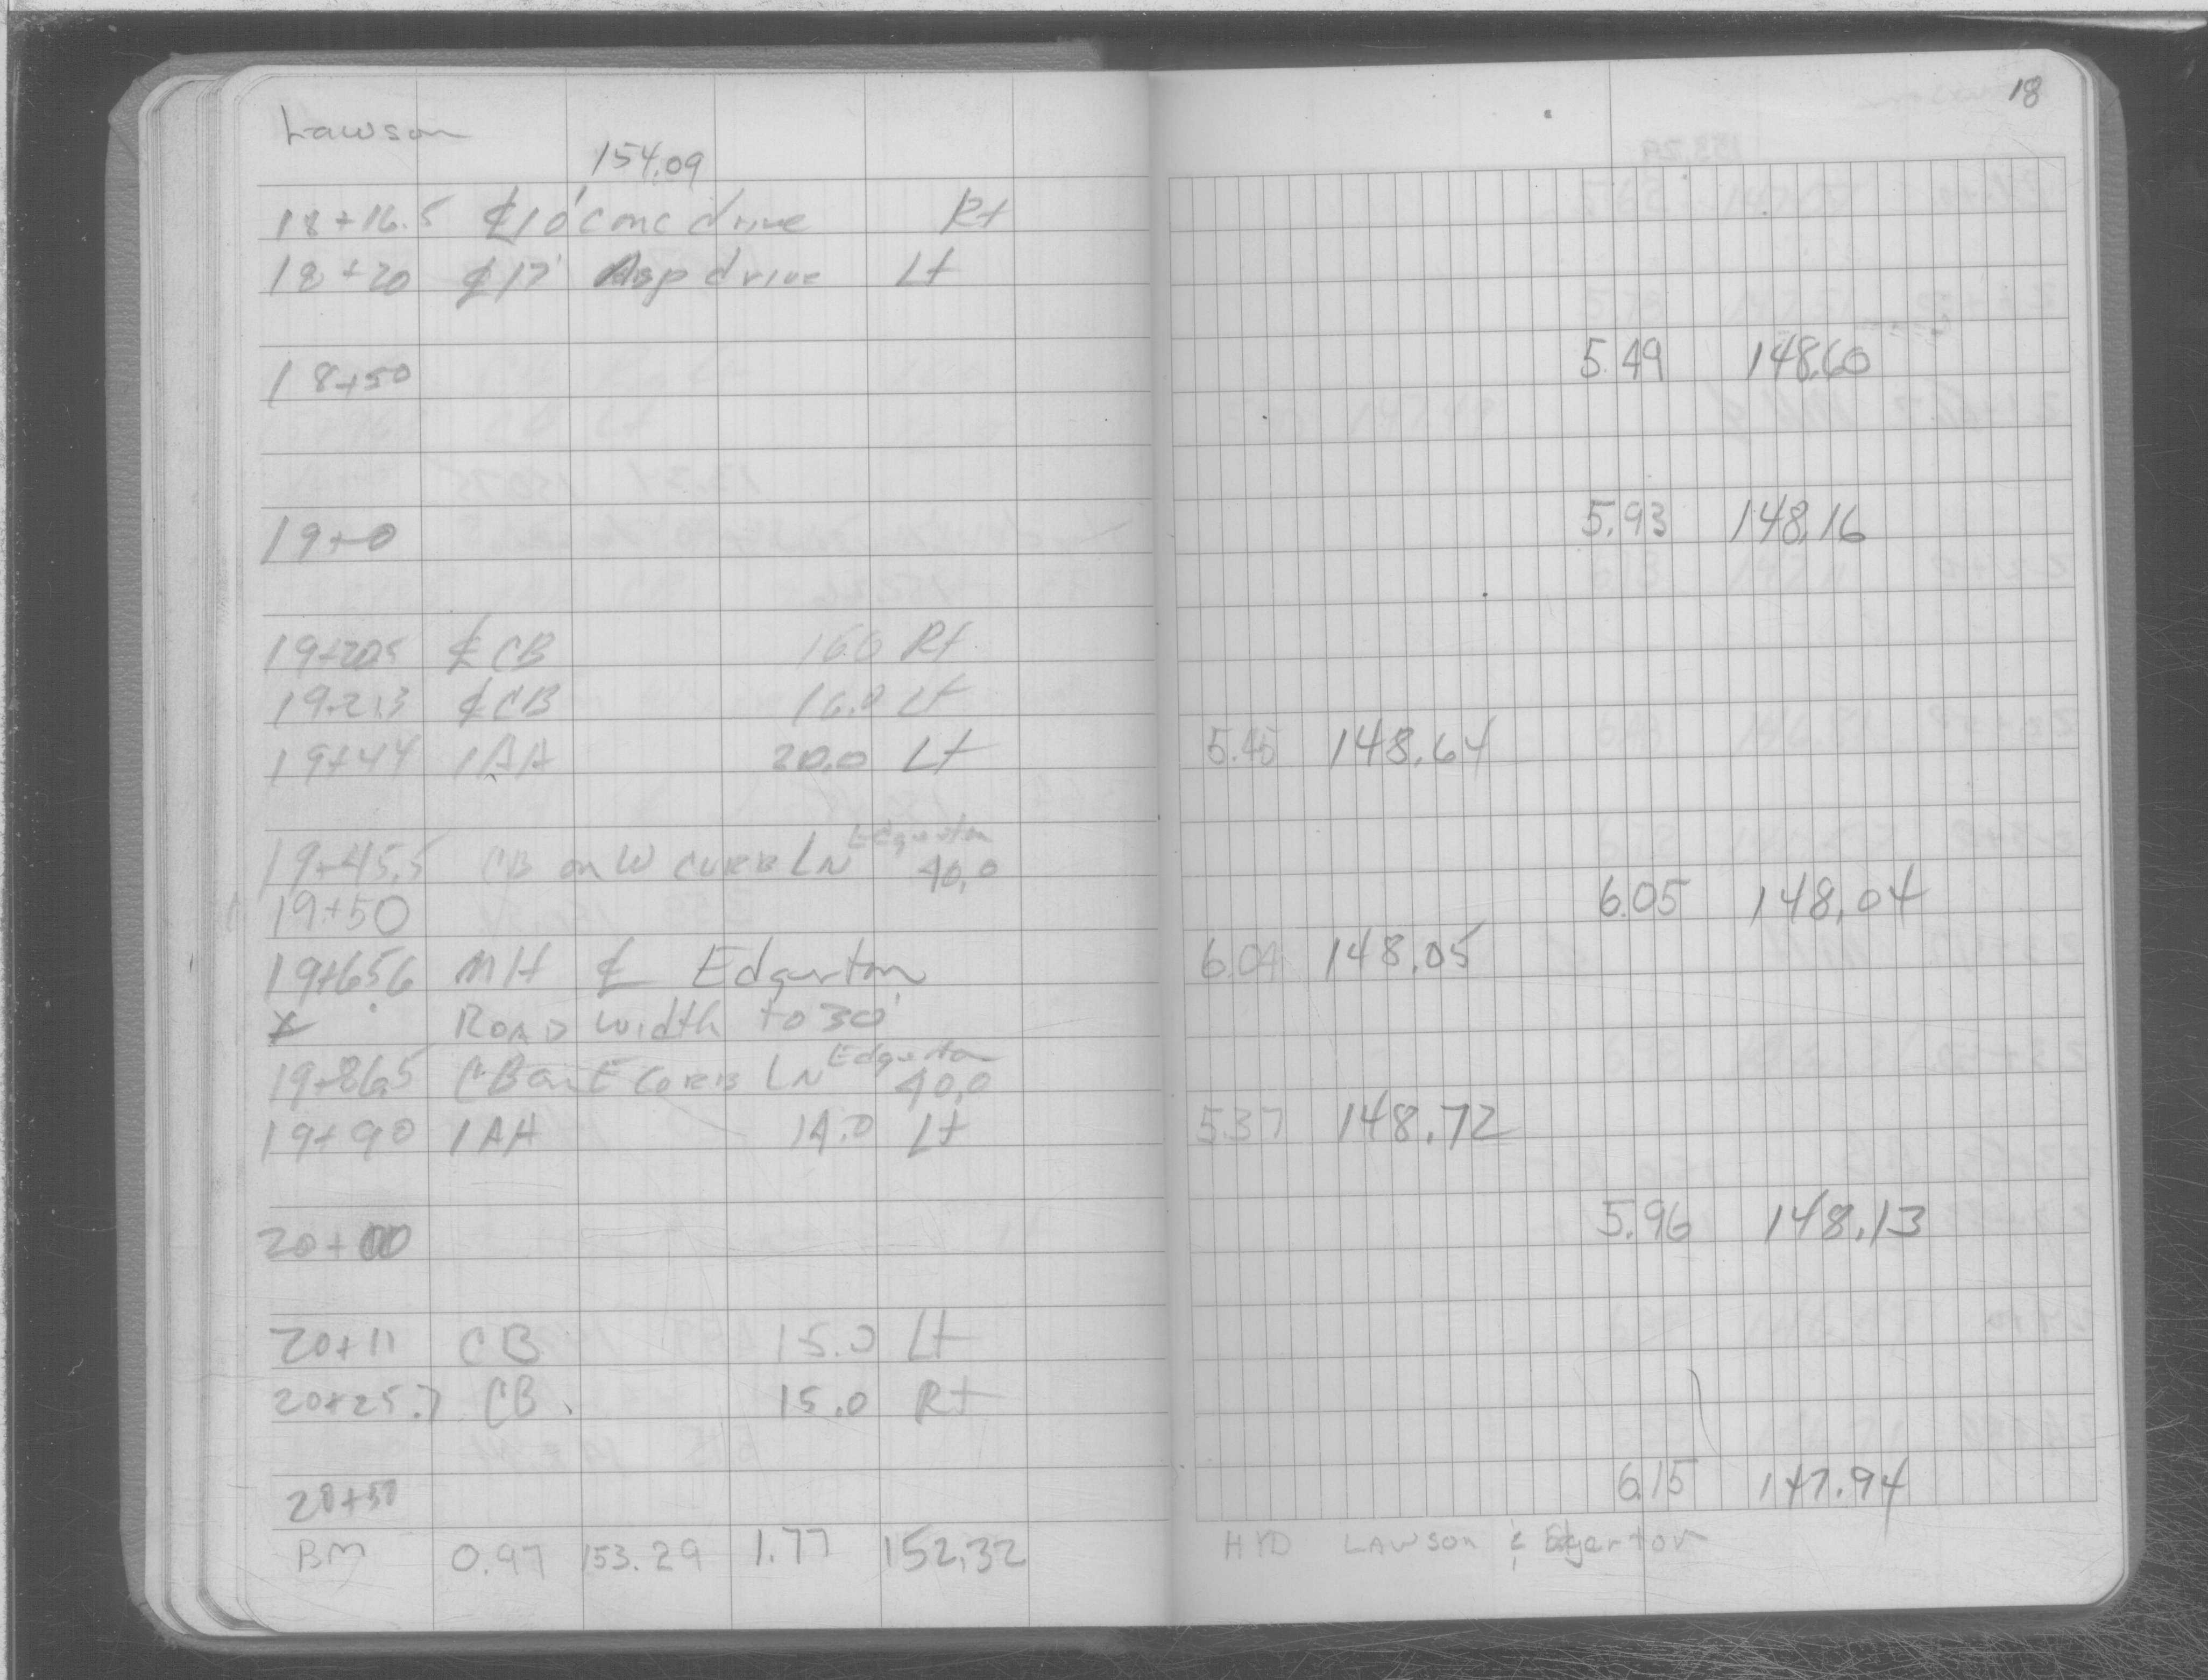 18
Lawson
154.09
18+16.5 ℄ 10' conc drive Rt
18+20 ℄ 17' Asp drive Lt
18+50 5.49 148.60
19+0 5.93 148.16
19+20.5 ℄ CB 16.0 Rt
19+21.3 ℄ CB 16.0 Lt
19+44 1AH 20.0 Lt 5.45 148.64
19+45.5 CB on W CURB LN Edgerton 40.0
19+50 6.05 148.04
19+65.6 MH ℄ Edgerton 6.04 148.05
ROAD width to 30'
19+86.5 CB on E CURB LN Edgerton 40.0
19+90 1AH 14.0 Lt 5.37 148.72
20+00 5.96 148.13
20+11 CB 15.0 Lt
20+25.7 CB 15.0 Rt
20+50 6.15 147.94
BM 0.97 153.29 1.77 152.32 HYD LAWSON & Edgerton